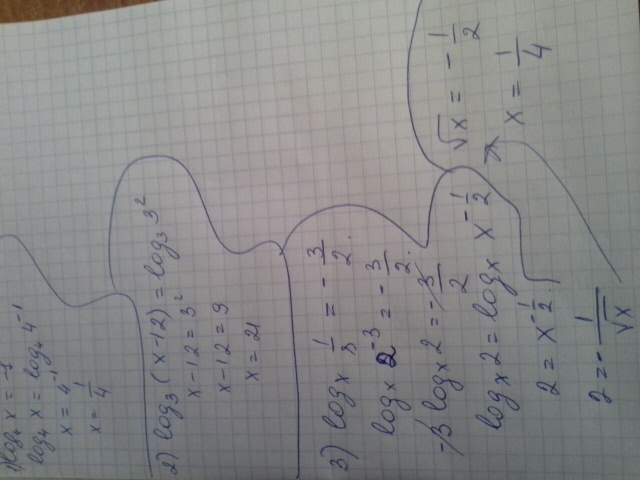 1) log₄ x = -1
log₄ x = log₄ 4⁻¹
x = 4⁻¹
x = 1/4
2) log₃ (x-12) = log₃ 3²
x-12 = 3²
x-12 = 9
x = 21
3) logₓ 1/8 = - 3/2.
logₓ 2⁻³ = - 3/2.
-3 logₓ 2 = - 3/2
logₓ 2 = logₓ x^(-1/2)
2 = x^(-1/2)
2 = - 1/√x
√x = - 1/2
x = 1/4